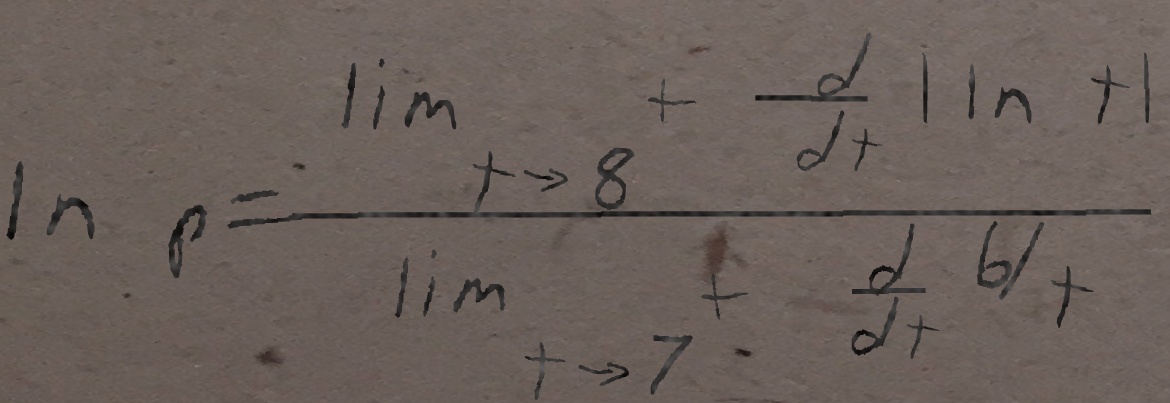 \ln p = \frac{\lim_{t \to 8} t \frac{d}{dt} |\ln t|}{\lim_{t \to 7} t \frac{d}{dt} 6/t}